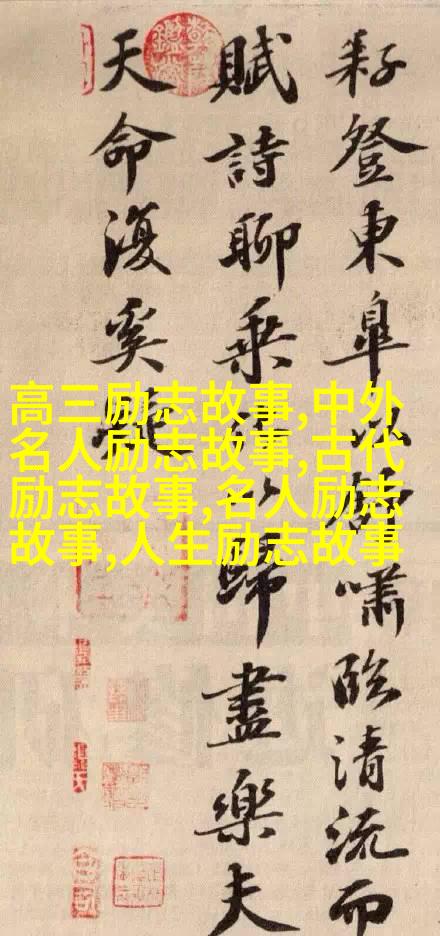 耔登東皐以舒嘯臨清流而
賦詩聊乘化以歸盡樂夫
天命復奚疑
高三励志故事,中外
名人励志故事,古代
励志故事,名人励志
故事,人生励志故事